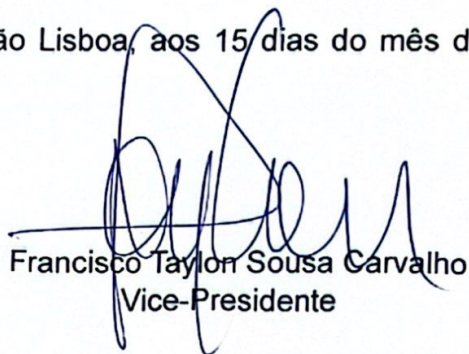 ão Lisboa, aos 15 dias do mês d
Francisco Taylon Sousa Carvalho
Vice-Presidente